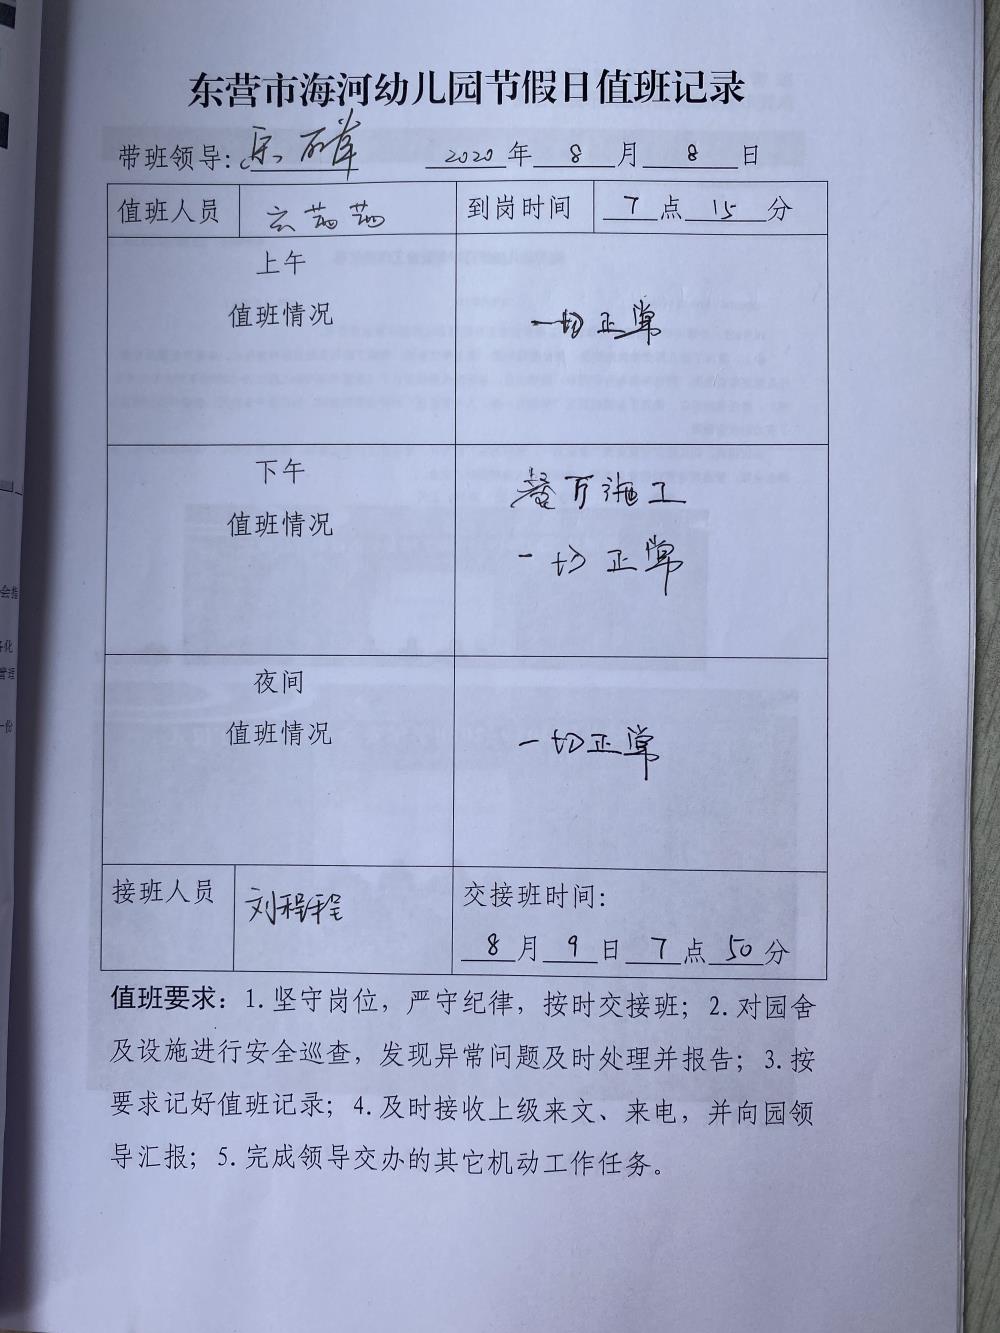 东营市海河幼儿园节假日值班记录
带班领导: 2020年8月8日
值班人员 云茜茜 到岗时间 7点15分
上午
值班情况
一切正常
下午
值班情况
餐厅施工
一切正常
夜间
值班情况
一切正常
接班人员 刘程程 交接班时间:
8月9日7点50分
值班要求：1.坚守岗位，严守纪律，按时交接班；2.对园舍
及设施进行安全巡查，发现异常问题及时处理并报告；3.按
要求记好值班记录；4.及时接收上级来文、来电，并向园领
导汇报；5.完成领导交办的其它机动工作任务。